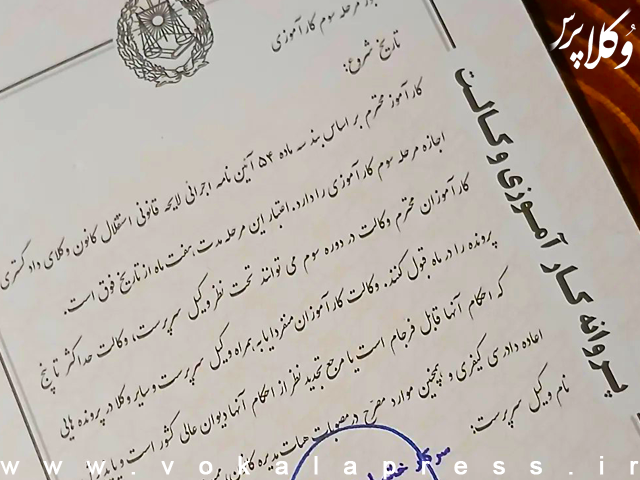 وکلاپرس
مرحله سوم کارآموزی
تاریخ شروع:
پروانه کارآموزی وکالت
کارآموز محترم بر اساس بند سه ماده ۵۴ آئین نامه اجرائی لایحه قانونی استقلال کانون وکلای دادگستری
اجازه مرحله سوم کارآموزی را دارد. اعتبار این مرحله مدت هفت ماه از تاریخ فوق است.
کارآموزان محترم وکالت در دوره سوم می توانند تحت نظر وکیل سرپرست، وکالت حداکثر تا پنج
پرونده را در ماه قبول کنند. وکالت کارآموزان منفردا یا به همراه وکیل سرپرست و سایر وکلا در پرونده هایی
که احکام آنها قابل فرجام است یا مرجع تجدید نظر از احکام آنها دیوان عالی کشور است و یا
اعاده دادرسی کیفری و همچنین موارد مصرح در مصوبات هیات مدیره کانون
نام وکیل سرپرست:
سرکار
www.vokalapress.ir